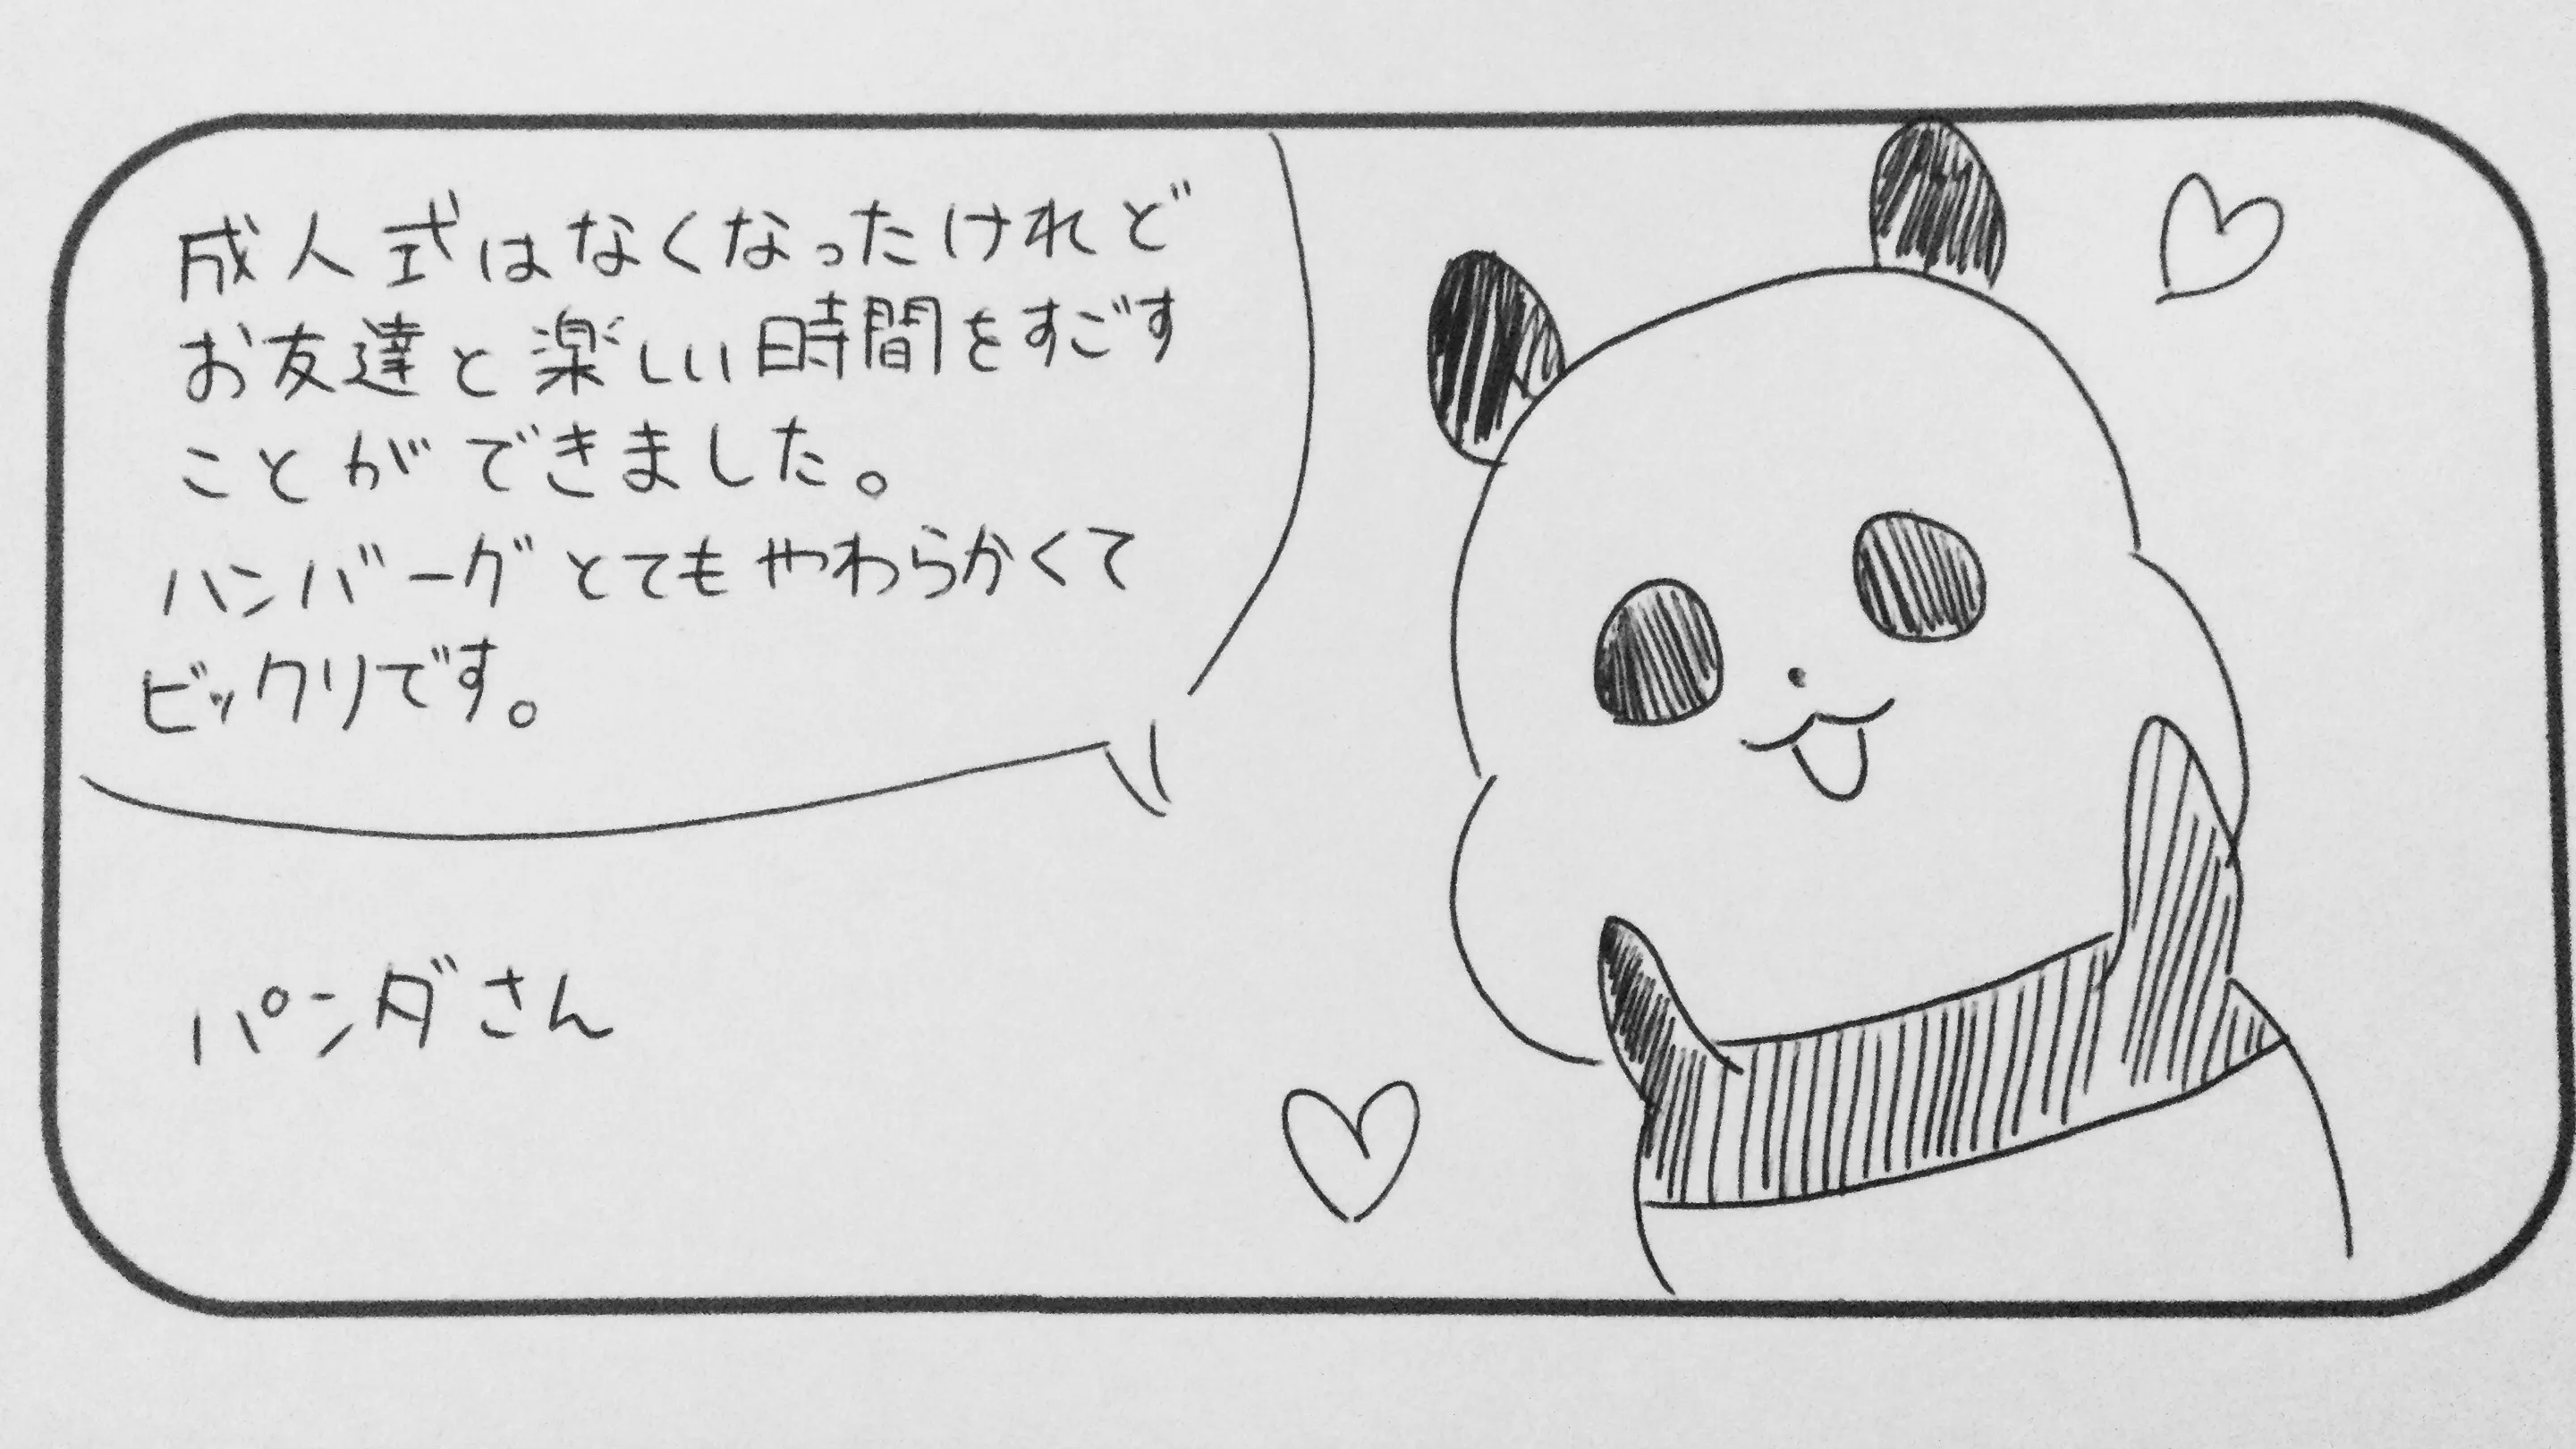 成人式はなくなったけれど
お友達と楽しい時間をすごす
ことができました。
ハンバーグとてもやわらかくて
ビックリです。
パンダさん